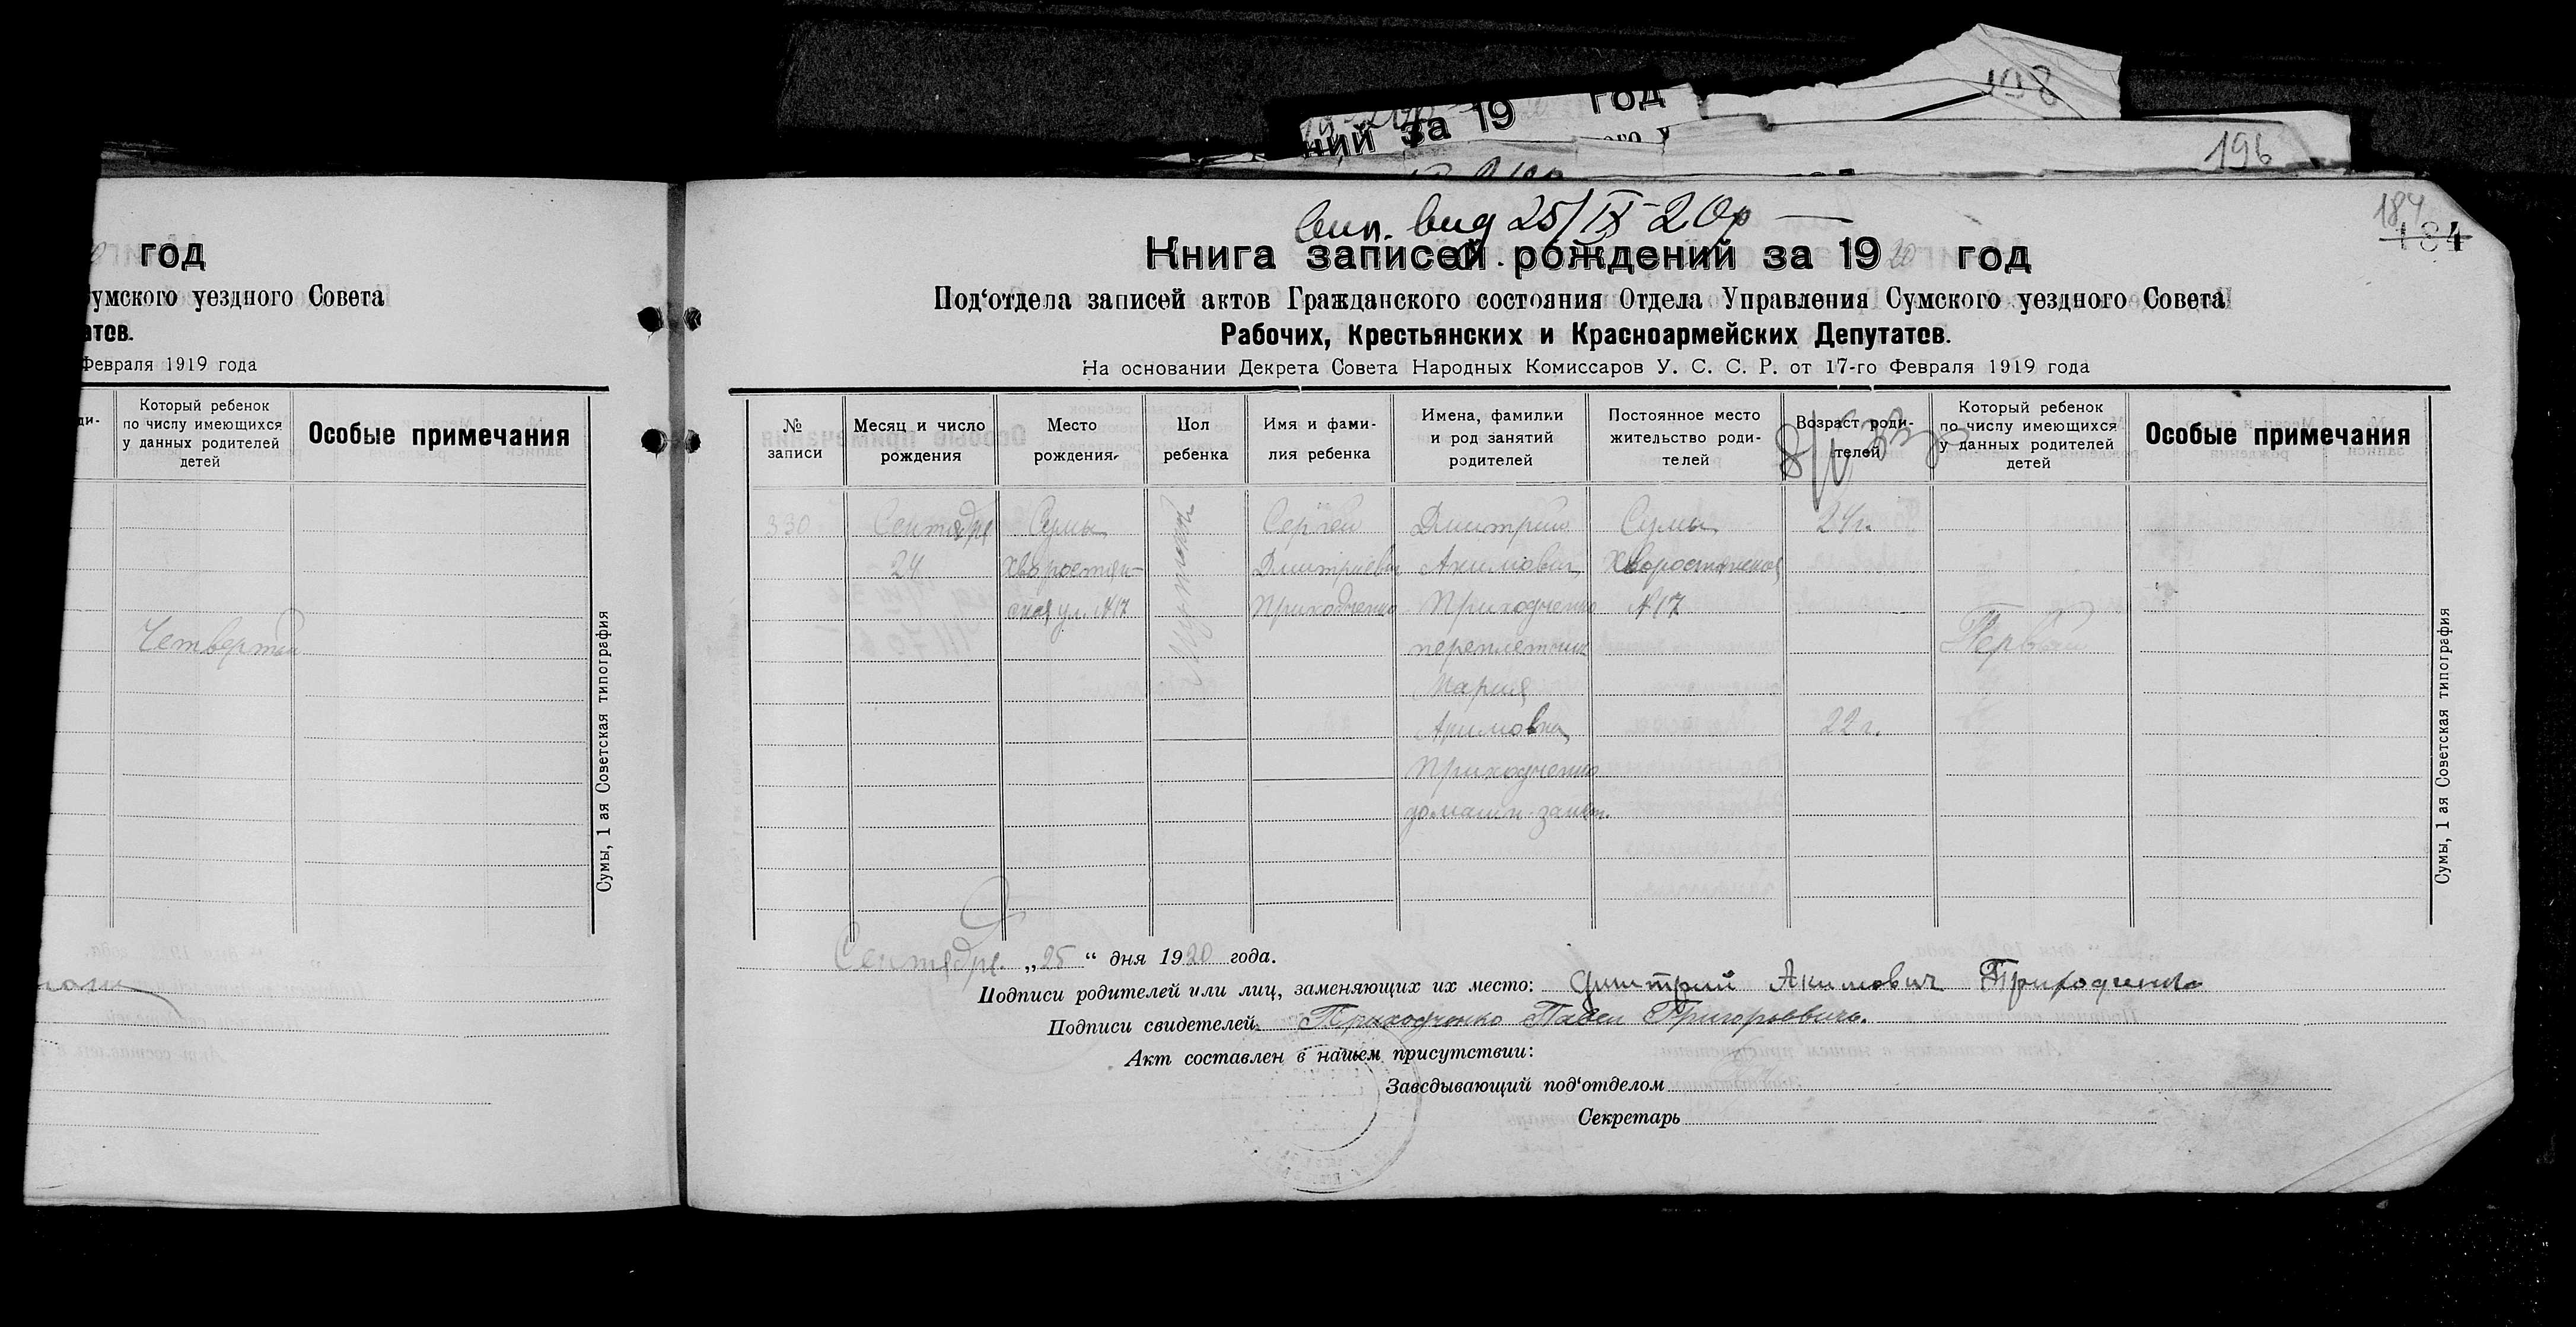 198
ний за 19 год
196
год
Сумского уездного Совета
атов.
Февраля 1919 года
Который ребенок
по числу имеющихся
у данных родителей
детей
Особые примечания
Четвертый
Сумы, 1 ая Советская типография
вид 25/IX 20р
184
184
Книга записей рождений за 1920 год
Под'отдела записей актов Гражданского состояния Отдела Управления Сумского уездного Совета
Рабочих, Крестьянских и Красноармейских Депутатов.
На основании Декрета Совета Народных Комиссаров У. С. С. Р. от 17-го Февраля 1919 года
№
записи
Месяц и число
рождения
Место
рождения
Пол
ребенка
Имя и фами-
лия ребенка
Имена, фамилии
и род занятий
родителей
Постоянное место
жительство роди-
телей
Возраст роди-
телей
Который ребенок
по числу имеющихся
у данных родителей
детей
Особые примечания
330
Сентября
24
Сумы
Хворостян-
ская ул. №17
Мужской
Сергей
Дмитриевич
Приходченко
Дмитрий
Акимович
Приходченко
переплетчик
Мария
Акимовна
Приходченко
домашн. занят.
Сумы
Хворостянская
№17
24 г.
22 г.
Первый
Сумы, 1 ая Советская типография
Сентября „25“ дня 1920 года.
Подписи родителей или лиц, заменяющих их место: Дмитрий Акимович Приходченко
Подписи свидетелей: Приходченко Павел Григорьевичъ.
Акт составлен в нашем присутствии:
Заведывающий под'отделом
Секретарь